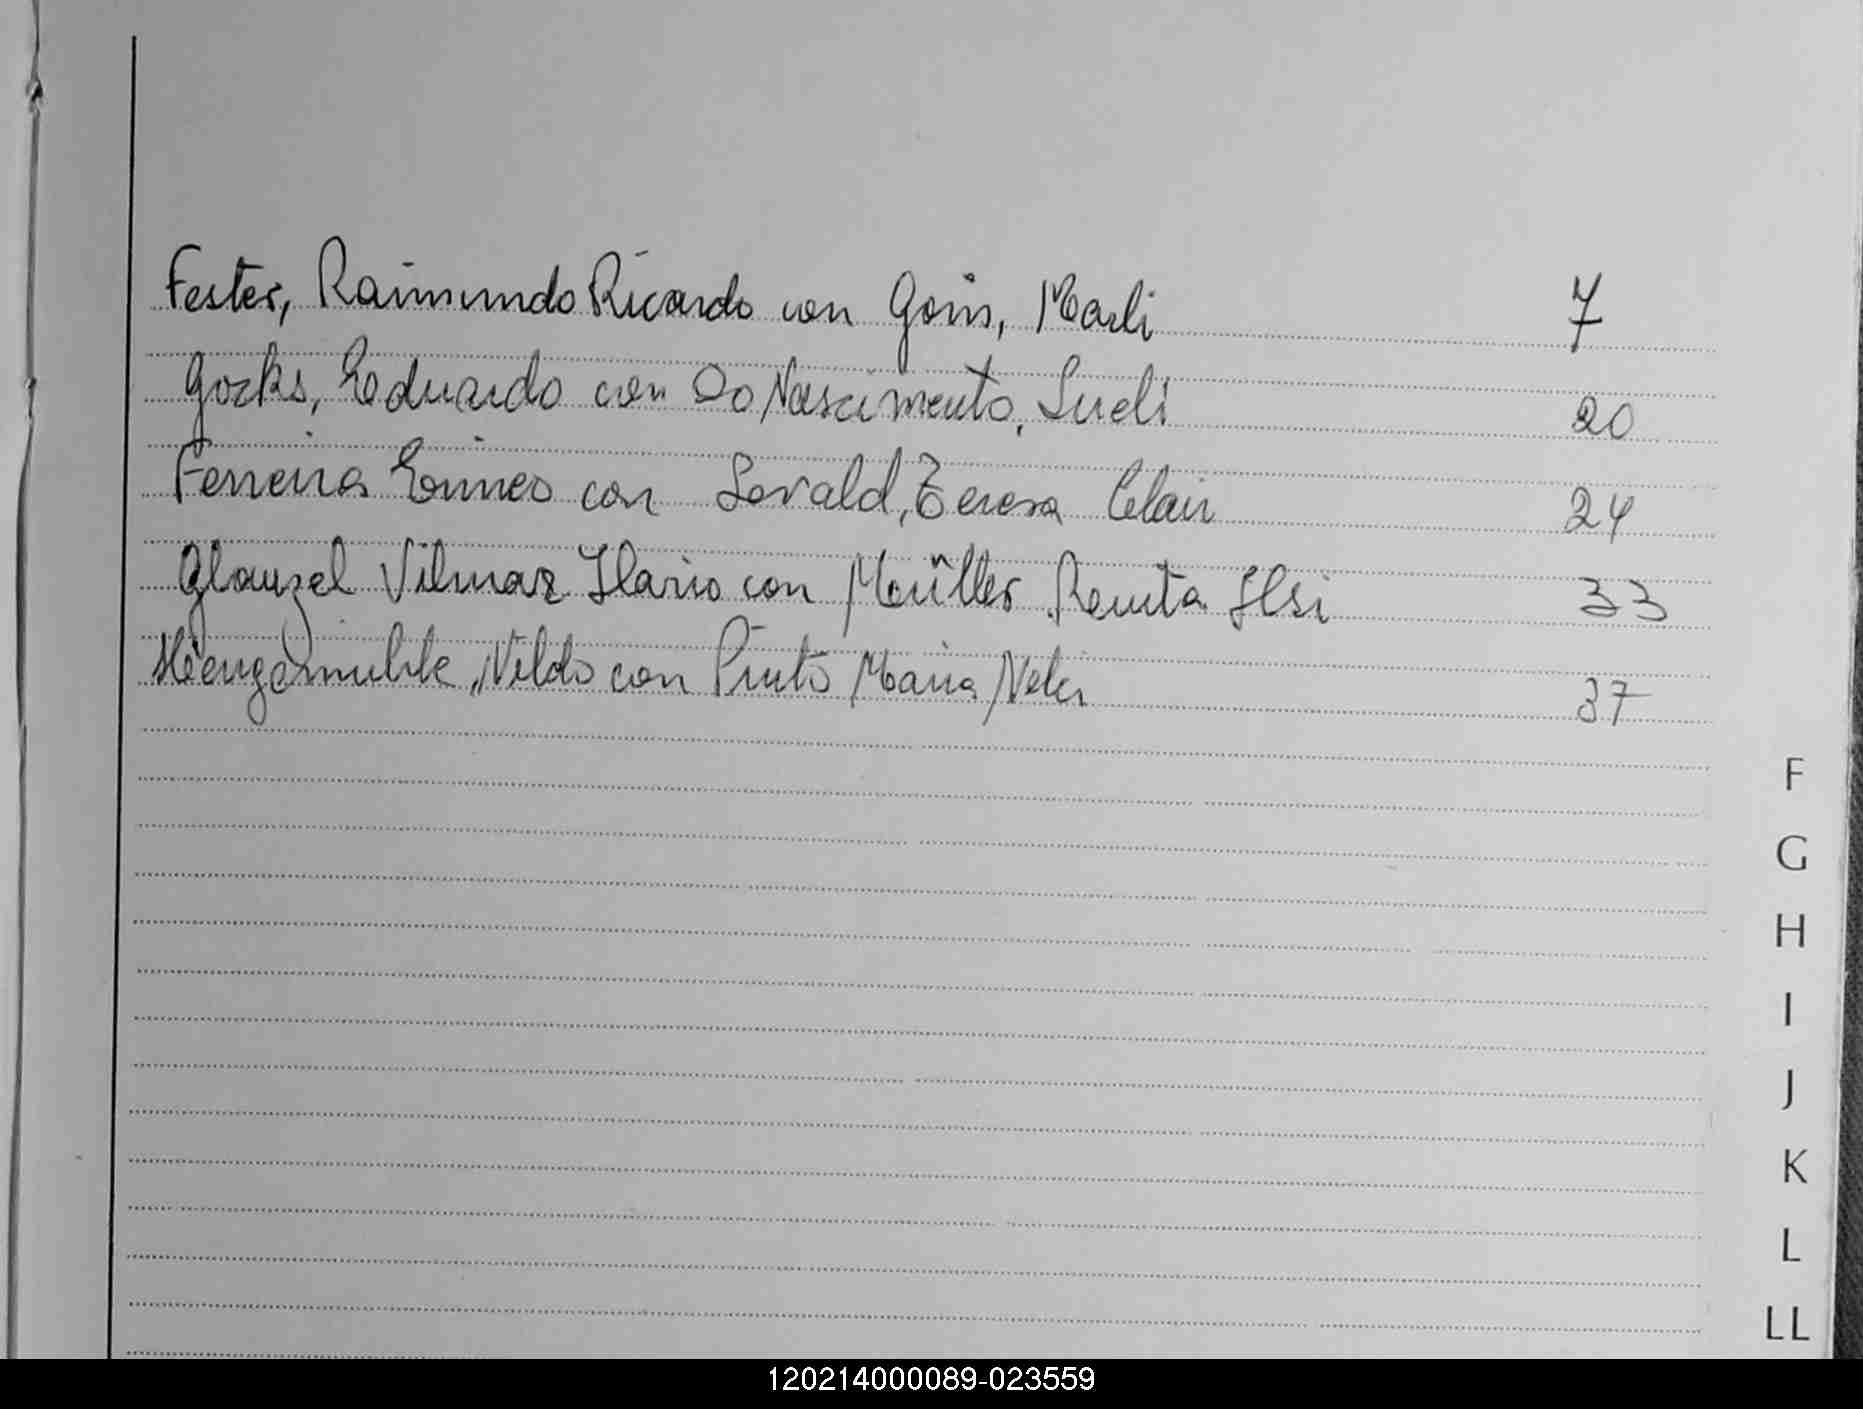 Fester, Raimundo Ricardo con Goin, Marli 7
Gocks, Eduardo con Do Nascimento, Sueli 20
Ferreira con Sovald, Teresa Clair 24
Glanzel Vilmar Ilario con Müller Renita Ilsi 33
Nildo con Pinto Maria Neli 37
F
G
H
I
J
K
L
LL
120214000089-023559